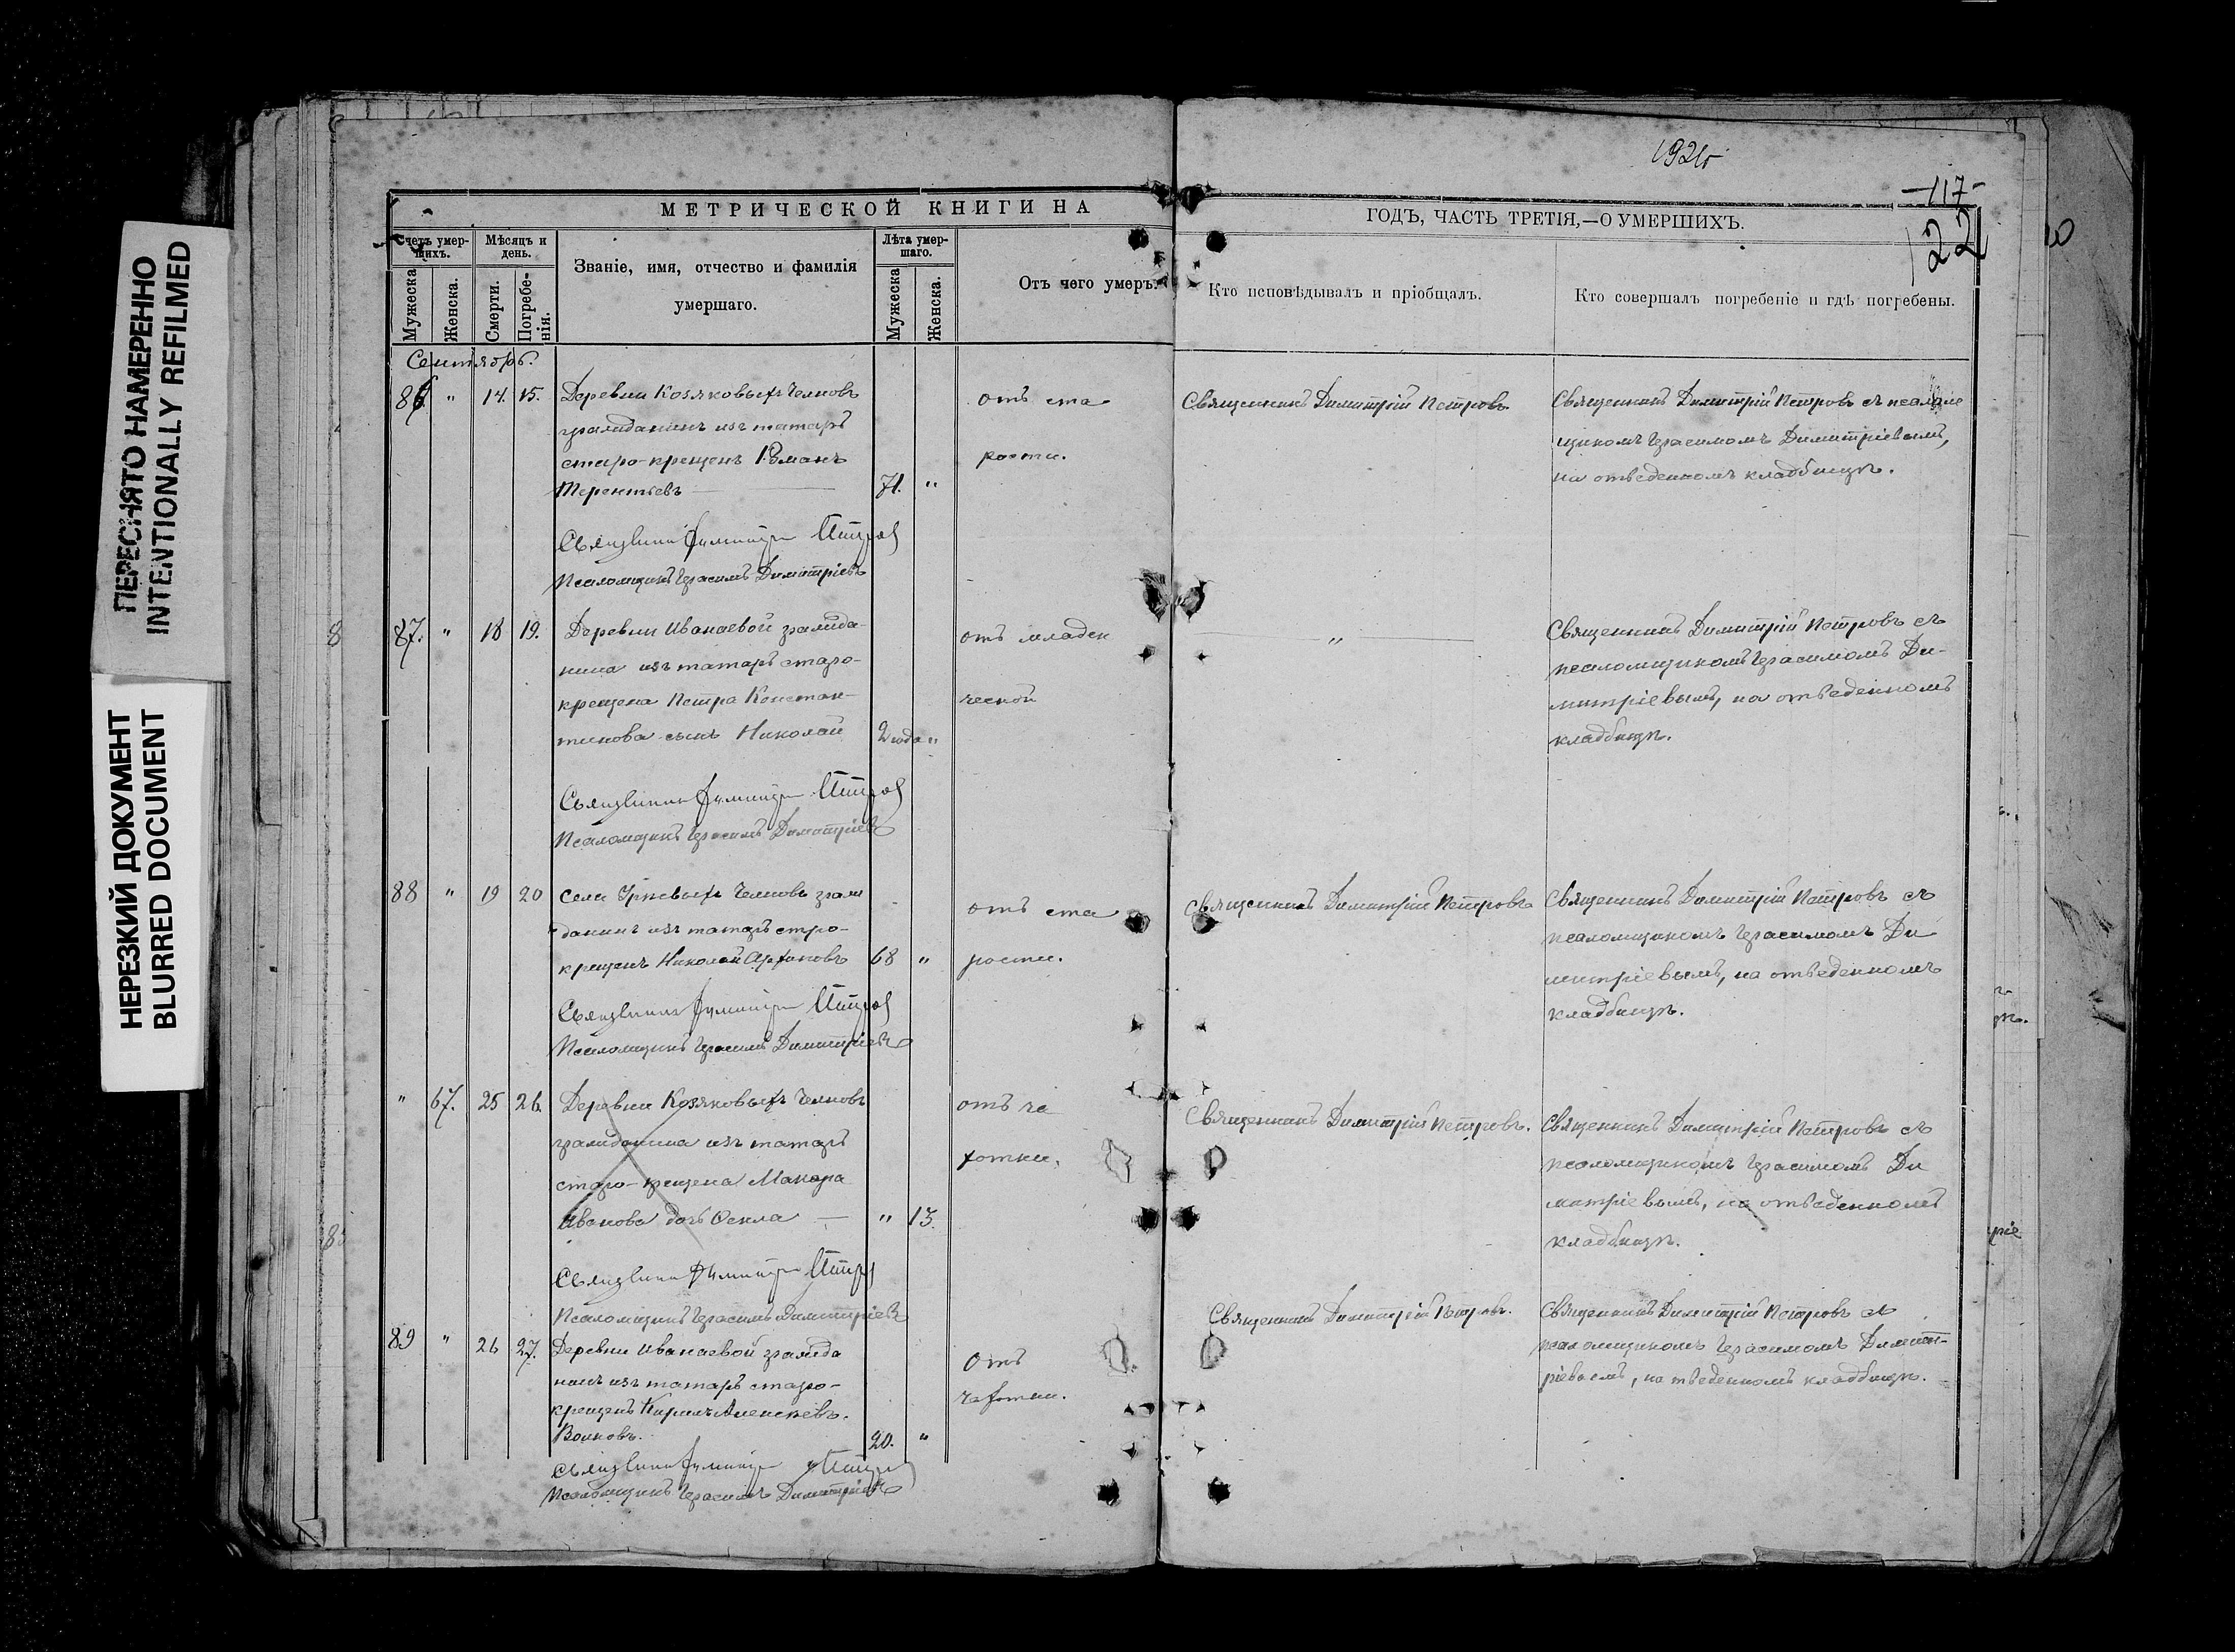 ПЕРЕСНЯТО НАМЕРЕННО
INTENTIONALLY REFILMED
НЕРЕЗКИЙ ДОКУМЕНТ
BLURRED DOCUMENT
117
122
МЕТРИЧЕСКОЙ КНИГИ НА
ГОДЪ, ЧАСТЬ ТРЕТІЯ,—О УМЕРШИХЪ.
Счетъ умершихъ.
Мужеска
Женска.
Мѣсяцъ и день.
Смерти.
Погребенія.
Званіе, имя, отчество и фамилія
умершаго.
Лѣта умершаго.
Мужеска
Женска.
Отъ чего умеръ.
Кто исповѣдывалъ и пріобщалъ.
Кто совершалъ погребеніе и гдѣ погребены.
Сентябрь.
86 " 14 15. Деревни Козяковыхъ Челновъ
гражданинъ изъ татаръ
старо-крещенъ Романъ
Терентьевъ 71. "
отъ ста
рости.
Священникъ Димитрій Петровъ
Священникъ Димитрій Петровъ съ псалом
щикомъ Герасимомъ Димитріевымъ,
на отведенномъ кладбищѣ.
Священникъ Димитрій Петровъ
Псаломщикъ Герасимъ Димитріевъ
87. " 18 19. Деревни Иванаевой гражда-
нина изъ татаръ старо-
крещена Петра Констан-
тинова сынъ Николай 2 года "
отъ младен
ческой
"
Священникъ Димитрій Петровъ съ
псаломщикомъ Герасимомъ Ди-
митріевымъ, на отведенномъ
кладбищѣ.
Священникъ Димитрій Петровъ
Псаломщикъ Герасимъ Димитріевъ
88 " 19 20 Села Челновъ граж
данинъ изъ татаръ стро-
крещенъ Николай 68 "
отъ ста
рости.
Священникъ Димитрій Петровъ
Священникъ Димитрій Петровъ съ
псаломщикомъ Герасимомъ Ди
митріевымъ, на отведенномъ
кладбищѣ.
Священникъ Димитрій Петровъ
Псаломщикъ Герасимъ Димитріевъ
" 67. 25 26. Деревни Козяковыхъ Челновъ
гражданина изъ татаръ
старо-крещена Макара
Иванова дочь Өекла — " 13.
отъ ча
хотки.
Священникъ Димитрій Петровъ.
Священникъ Димитрій Петровъ съ
псаломщикомъ Герасимомъ Ди
митріевымъ, на отведенномъ
кладбищѣ.
Священникъ Димитрій Петровъ
Псаломщикъ Герасимъ Димитріевъ
89 " 26 27. Деревни Иванаевой гражда
нинъ изъ татаръ старо-
крещенъ Кирилъ Алексѣевъ.
Волковъ. 20. "
Отъ
чахотки.
Священникъ Димитрій Петровъ.
Священникъ Димитрій Петровъ съ
псаломщикомъ Герасимомъ Димит-
ріевымъ, на тведенномъ кладбищѣ.
Священникъ Димитрій Петровъ
Псаломщикъ Герасимъ Димитріевъ